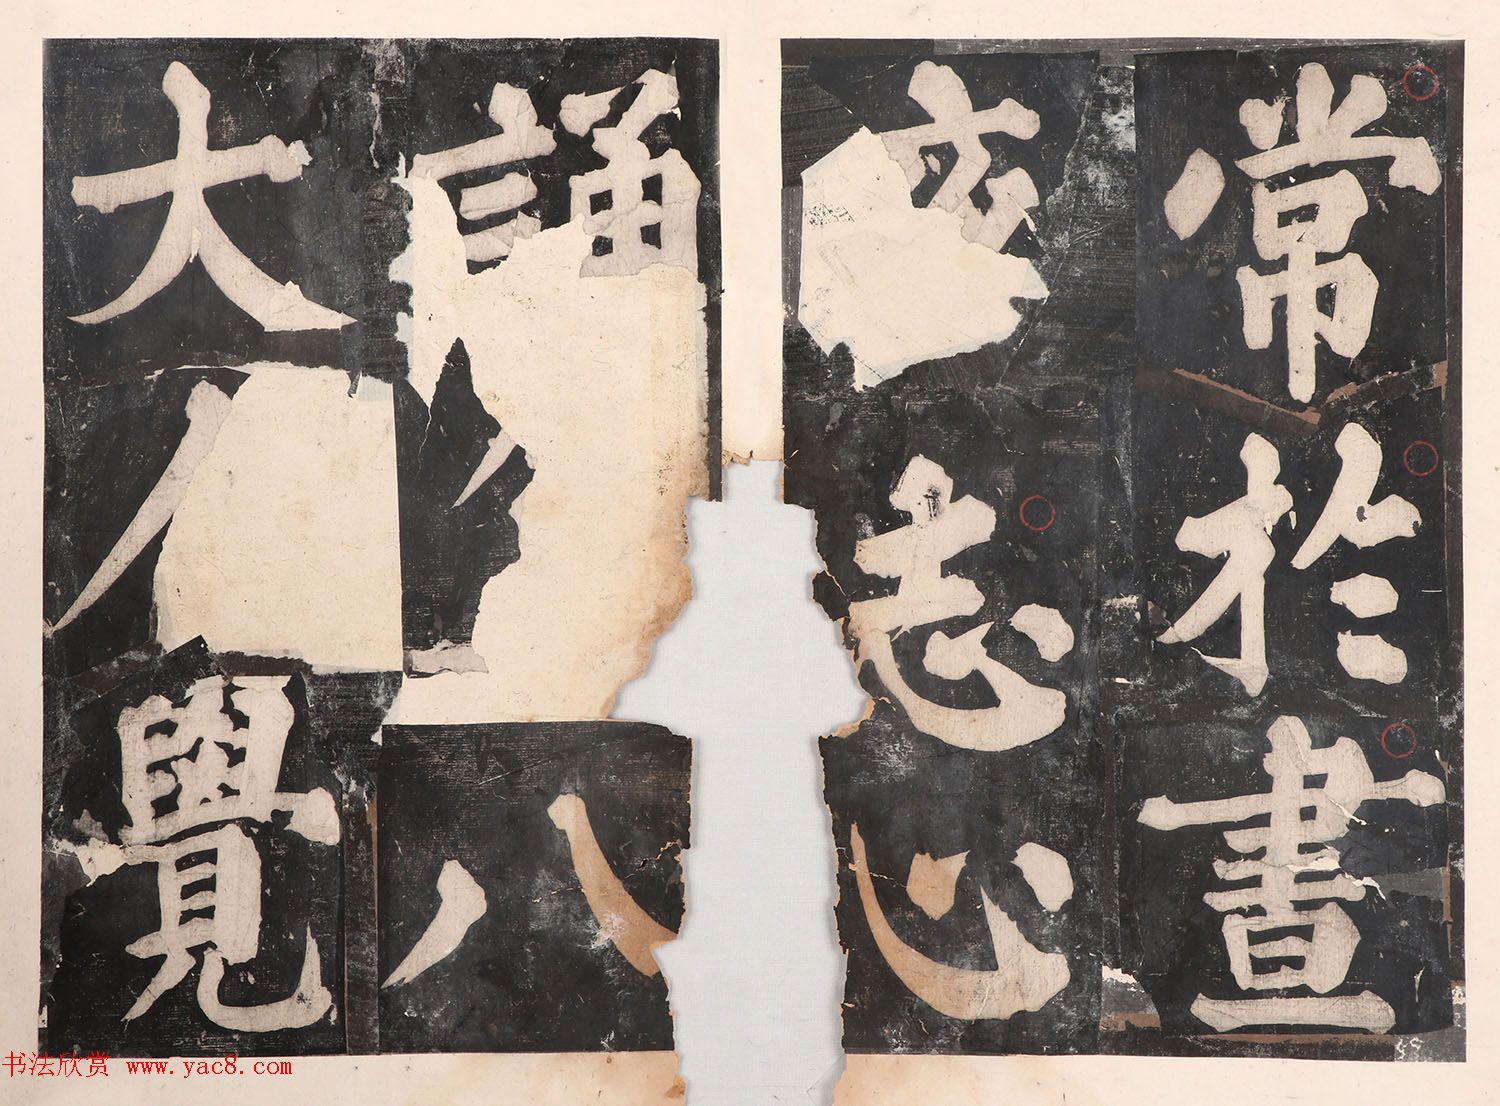 常於晝
志心
誦八
大人覺
书法欣赏 www.yac8.com